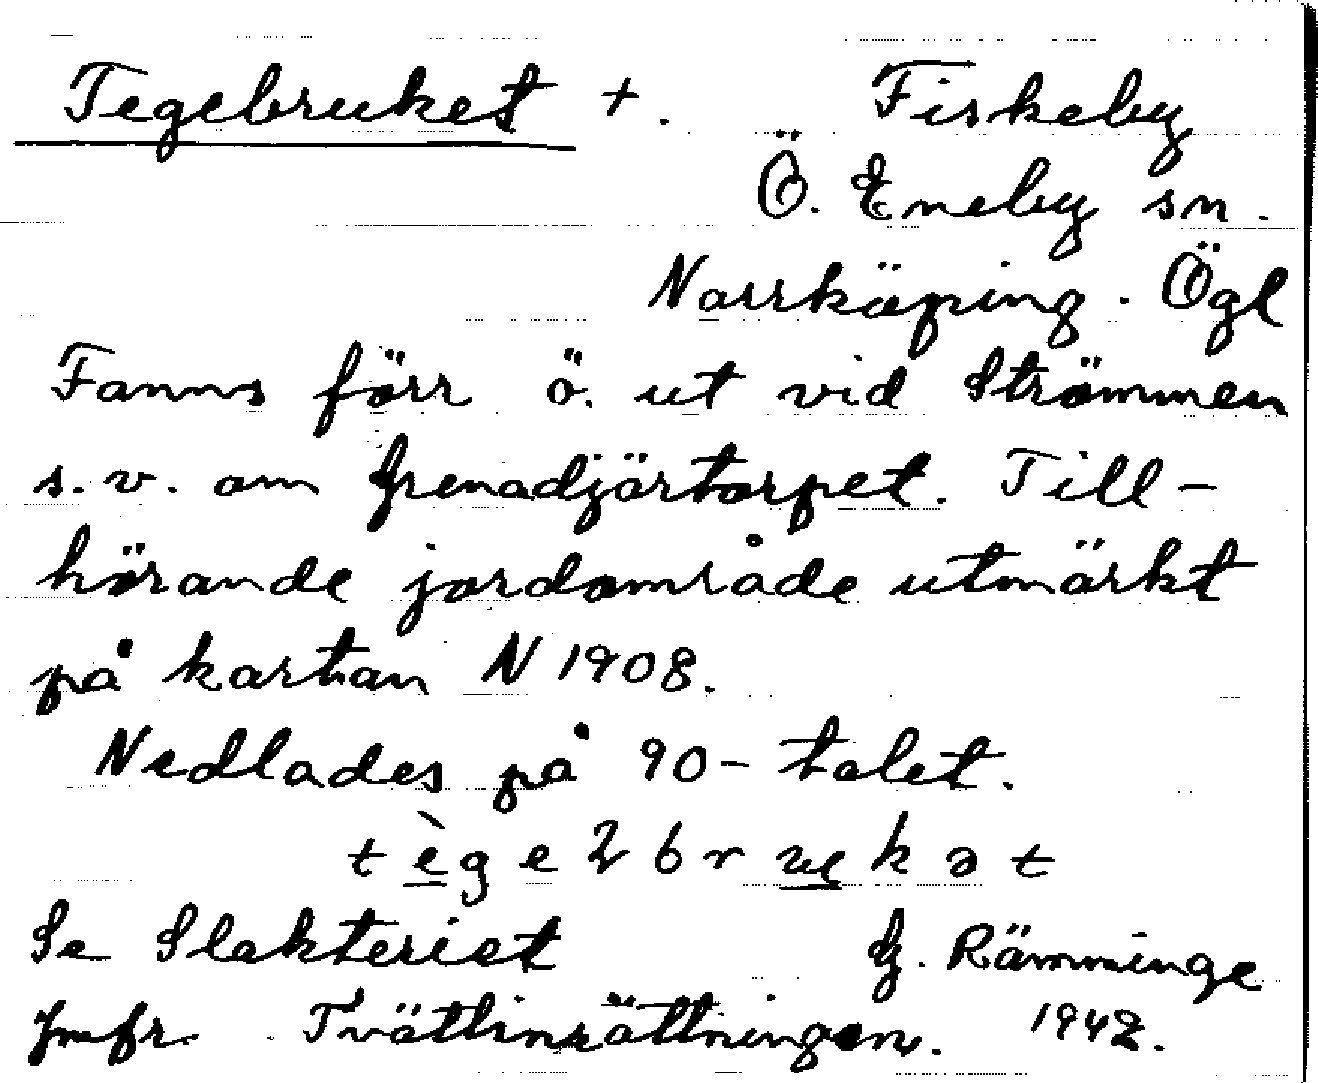 Tegebruket +. Fiskeby
Ö. Eneby sn.
Norrköping. Ögl
Fanns förr ö. ut vid Strömmen
s.v. om Grenadjärtorpet. Till-
hörande jordområde utmärkt
på kartan N 1908.
Nedlades på 90-talet.
tège2brukət
Se Slakteriet G. Rämminge
Jmfr. Tvättinrättningen. 1942.